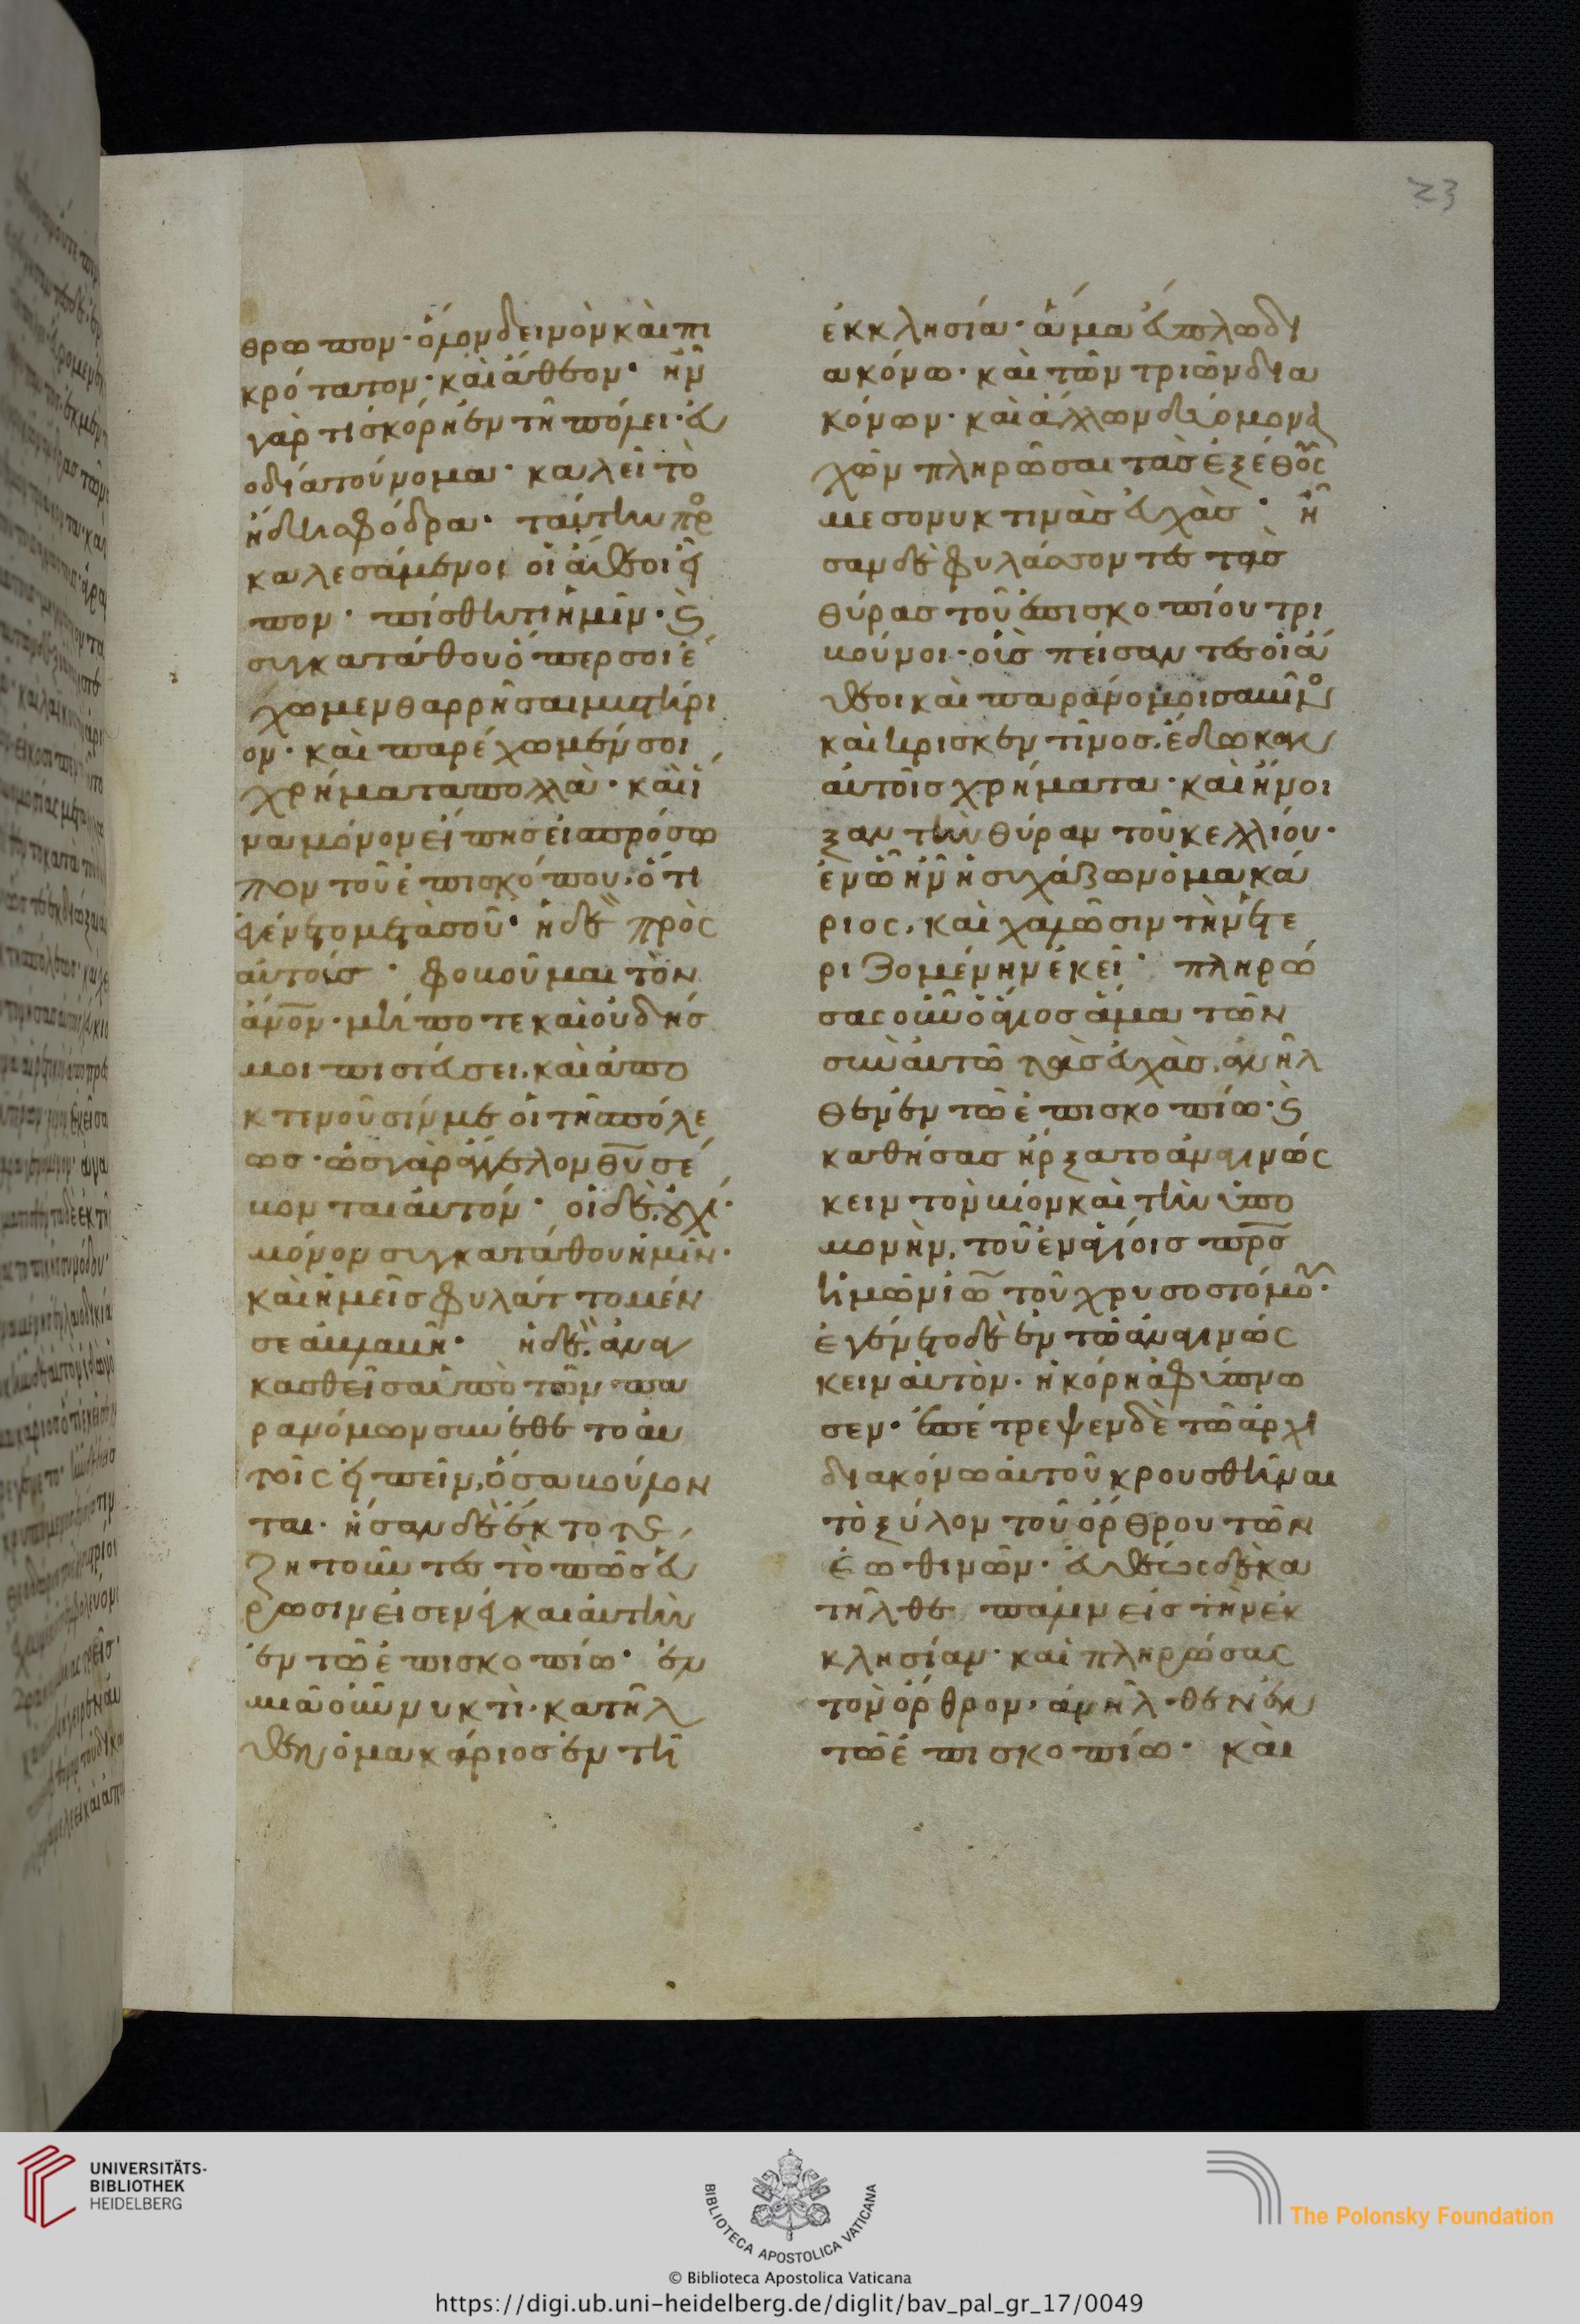 23
θρωπον· ὅμον δεινὸν καὶ πι
κρότατον· καὶ ἄθεον· ἦν
γὰρ τίς κόρη ἐν τῇ πόλει· εὐ
οδία τοὔνομα· καλεῖ τὸ
ἡδυια σφόδρα· ταύτην πρ
καλεσάμενοι οἱ ἄθεοι εἶ
πον· πίσθητι ἡμῖν· ϛ
συγκατάθου ὅπερ σοι ἔ
χωμεν θαρρῆσαι μυστήρι
ον· καὶ παρέχωμέν σοι
χρήματα πολλὰ· καὶ ἵ
να μόνον εἴπησ εἰς πρόσω
πον τοῦ ἐπισκόπου· ὅτι
ἐγένετο μετὰ σοῦ· ἡ δὲ πρὸς
αὐτούς· φοβοῦμαι τὸν
ἄνον· μήποτε καὶ οὐδείσ
μοι πιστεύσει· καὶ ἀπο
κτενοῦσίν με οἱ τῆς πόλε
ωσ· ὡσ γὰρ ἄγγελον θυ σέ
βονται αὐτόν· οἱ δὲ· οὐχί·
μόνον συγκατάθου ἡμῖν·
καὶ ἡμεῖσ φυλάττομέν
σε ἀβλαβῆ· ἡ δὲ· ἀναγ
κασθεῖσα ὑπὸ τῶν πα
ρανόμων συνέθετο αὐ
τοῖς εἰπεῖν, ὅσα βούλον
ται· ἦσαν δὲ ἔκτοτε
ζητοῦντεσ τὸ πῶσ εὕ
ρωσιν εἰσενέγκαι αὐτὴν
ἐν τῶ ἐπισκοπίω· ἐν
μιᾶ οὖν νυκτὶ· κατῆλ
θεν ὁ μακάριοσ ἐν τῆ
ἐκκλησία· ἅμα εὐπλω δι
ακόνω· καὶ τῶν τριῶν δια
κόνων· καὶ ἄλλων δύο μονα
χῶν πληρῶσαι τὰσ ἐξ ἔθους
μεσονυκτινὰσ εὐχὰσ· ἦ
σαν δὲ φυλάσσοντεσ τὰσ
θύρασ τοῦ ἐπισκοπίου τρι
βούνοι· οἷσ πείσαντεσ οἱ ἄ
θεοι καὶ παράνομοι σαβῖνος
καὶ πρισκεντῖνοσ· ἔδωκαν
αὐτοῖσ χρήματα· καὶ ἤνοι
ξαν τὴν θύραν τοῦ κελλίου·
ἐν ᾧ ἦν ἡσυχάζων ὁ μακά
ριος, καὶ χαλῶσιν τὴν ἑτε
ριζομένην ἐκεῖ· πληρώ
σας οὖν ὁ ἅγιοσ ἅμα τῶν
σὺν αὐτῶ τὰσ εὐχὰσ, ἀνῆλ
θεν ἐν τῶ ἐπισκοπίω· ϛ
καθήσασ ἤρξατο ἀναγινώς
κειν τὸν βίον καὶ τὴν ὑπο
μονὴν, τοῦ ἐν ἁγίοισ πρσ
ἡμῶν ἰω τοῦ χρυσοστόμου·
ἐγένετο δὲ ἐν τῶ ἀναγινώς
κειν αὐτὸν· ἡ κόρη ἀφύπνω
σεν· ἐπέτρεψεν δὲ τῶ ἀρχι
διακόνω αὐτοῦ κρουσθῆναι
τὸ ξύλον τοῦ ὄρθρου τῶν
ἑωθινῶν· εὐθέως δὲ κα
τῆλθε πάλιν εἰσ τὴν ἐκ
κλησίαν· καὶ πληρώσας
τὸν ὄρθρον· ἀνῆλθεν ἐν
τῶ ἐπισκοπίω· καὶ
UNIVERSITÄTS-
BIBLIOTHEK
HEIDELBERG
BIBLIOTECA APOSTOLICA VATICANA
The Polonsky Foundation
© Biblioteca Apostolica Vaticana
https://digi.ub.uni-heidelberg.de/diglit/bav_pal_gr_17/0049